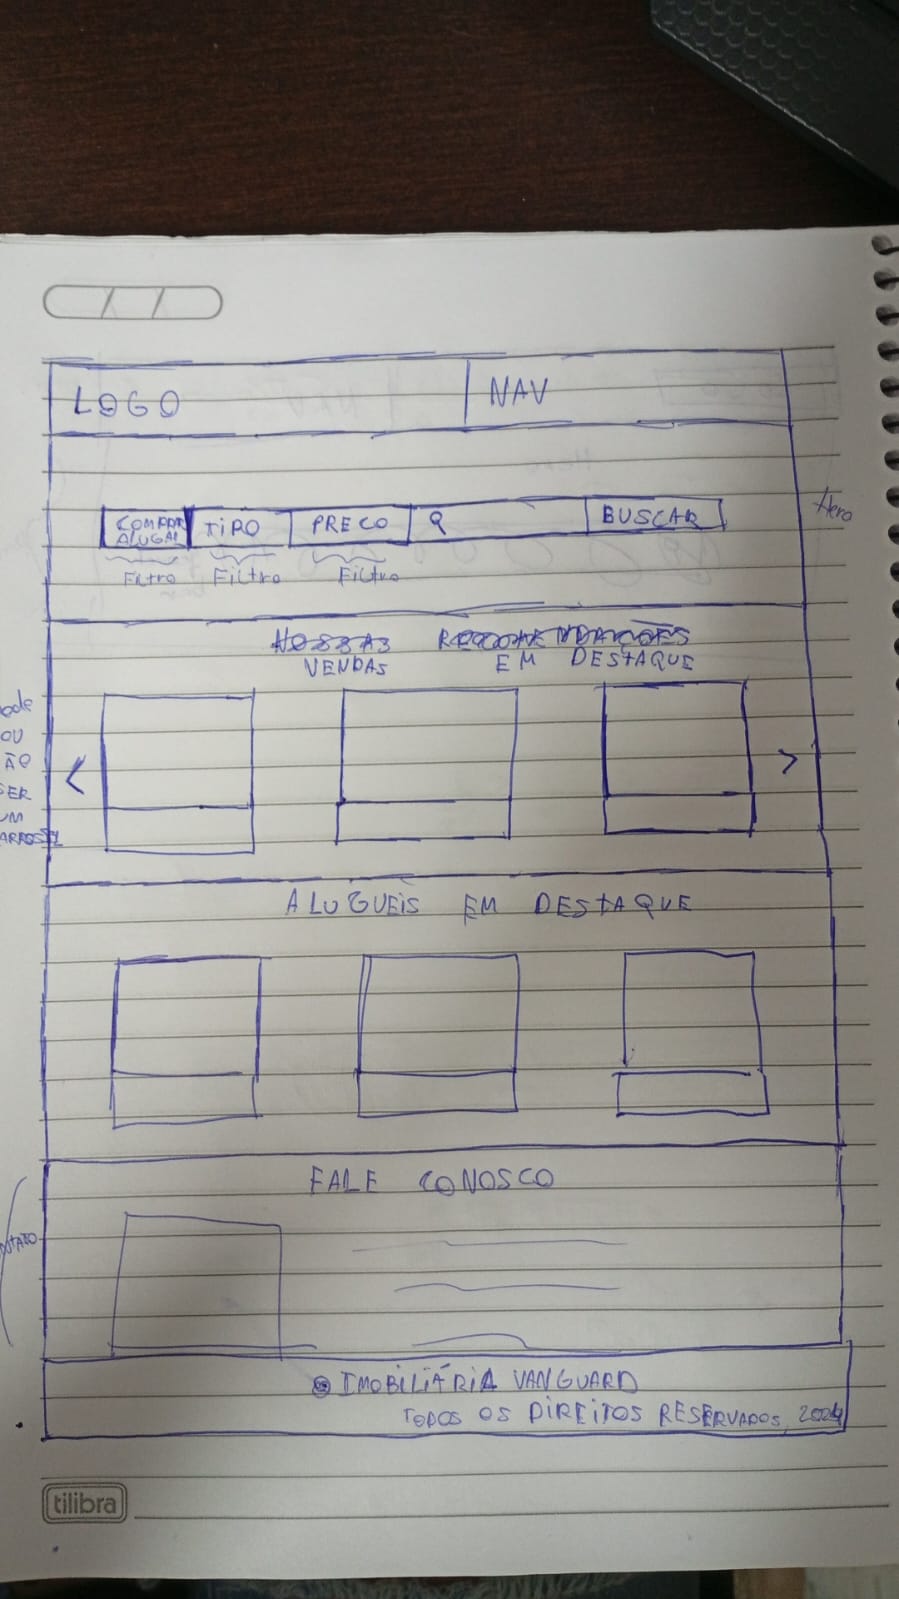 LOGO
NAV
COMPRAR
ALUGAR
TIPO
PRECO
BUSCAR
Hero
Filtro
Filtro
Filtro
NOSSAS RECOMENDAÇÕES
VENDAS EM DESTAQUE
ode
OU
ÃO
SER
UM
ARROSEL
<
>
ALUGUEIS EM DESTAQUE
FALE CONOSCO
IMOBILIÁRIA VANGUARD
TODOS OS DIREITOS RESERVADOS, 2024
tilibra